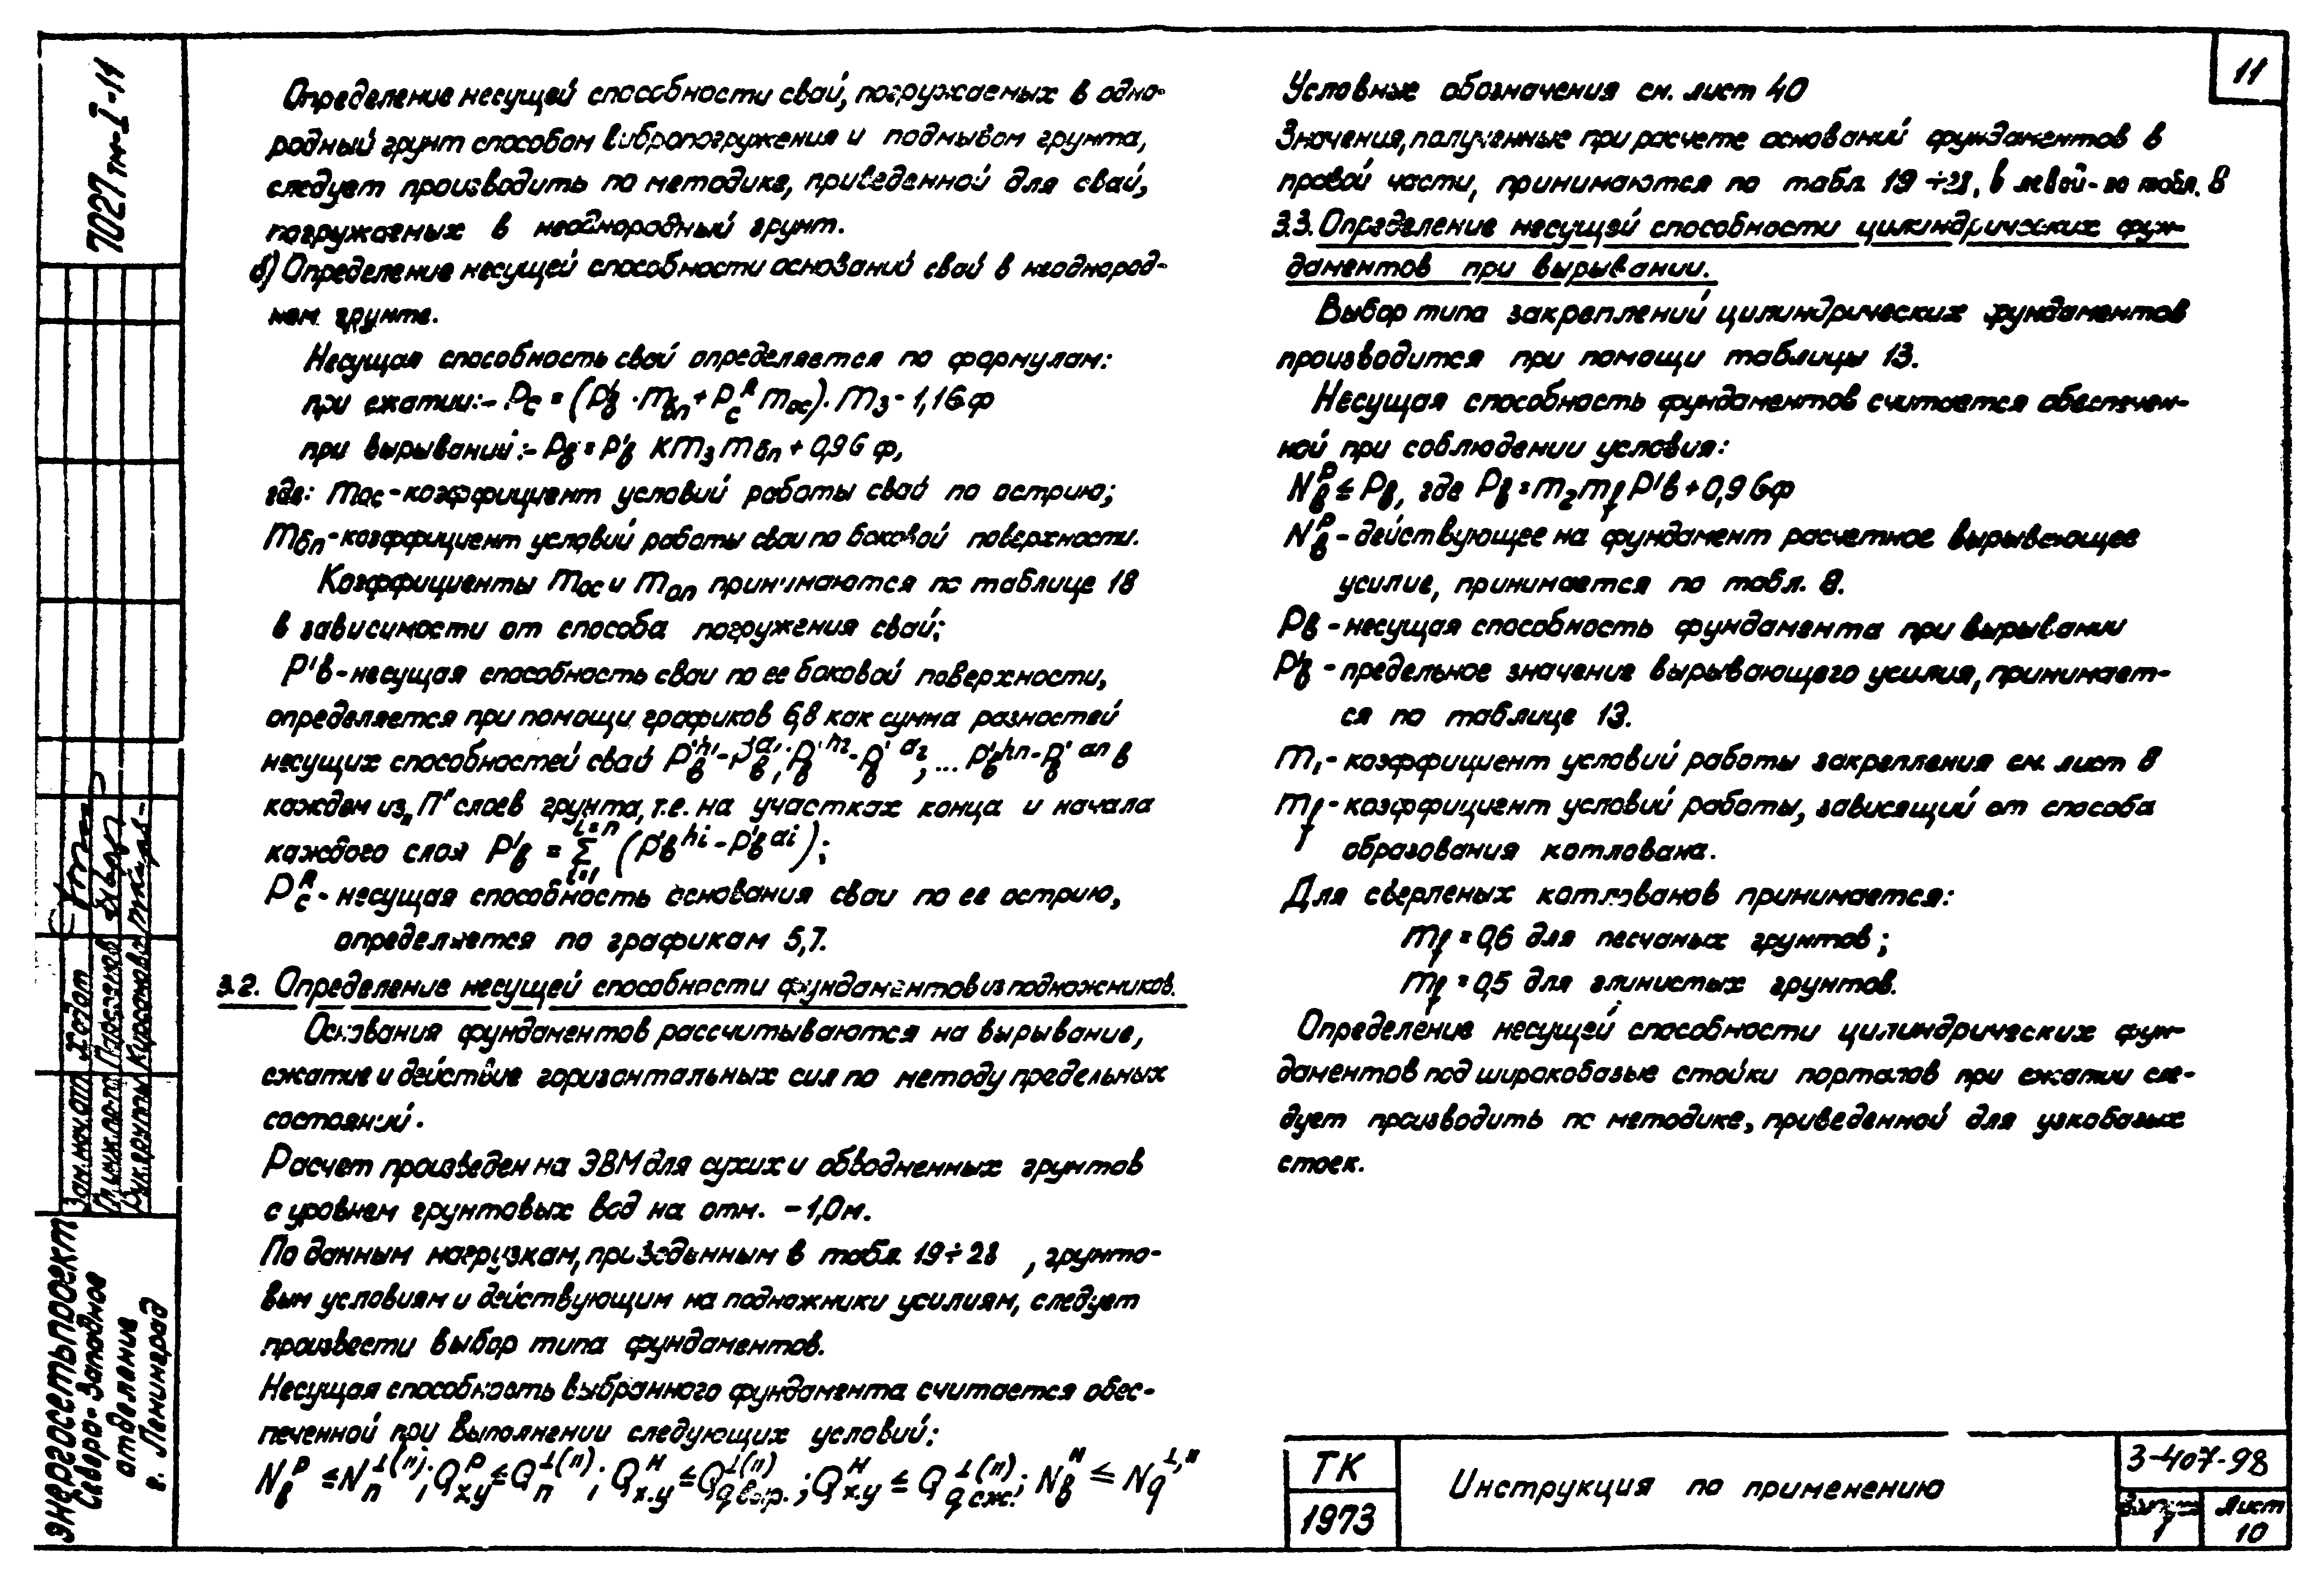 11
7027тм-I-11
Определение несущей способности свай, погружаемых в одно-
родный грунт способом вибропогружения и подмывом грунта,
следует производить по методике, приведенной для свай,
погружаемых в неоднородный грунт.
б) Определение несущей способности оснований свай в неоднород-
ном грунте.
Несущая способность свай определяется по формулам:
при сжатии:- Pс = (P'в · mбп + Pс^Я mос) · mз - 1,1Gф
при вырываний:- Pв = P'в K mз mбп + 0,9Gф,
где: mос - коэффициент условий работы свай по острию;
mбп - коэффициент условий работы сваи по боковой поверхности.
Коэффициенты mос и mоп принимаются по таблице 18
в зависимости от способа погружения свай;
P'в - несущая способность сваи по ее боковой поверхности,
определяется при помощи графиков 6,8 как сумма разностей
несущих способностей свай P'в^h1 - P'в^a1; P'в^h2 - P'в^a2, ... P'в^hn - P'в^an в
каждом из "П" слоев грунта, т.е. на участках конца и начала
каждого слоя P'в = Σ i=1 i=n (P'в^hi - P'в^ai);
Pс^Я - несущая способность основания сваи по ее острию,
определяется по графикам 5,7.
3.2. Определение несущей способности фундаментов из подножников.
Основания фундаментов рассчитываются на вырывание,
сжатие и действие горизонтальных сил по методу предельных
состояний.
Расчет произведен на ЭВМ для сухих и обводненных грунтов
с уровнем грунтовых вод на отм. -1,0м.
По данным нагрузкам, приведенным в табл. 19÷28 , грунто-
вым условиям и действующим на подножники усилиям, следует
произвести выбор типа фундаментов.
Несущая способность выбранного фундамента считается обес-
печенной при выполнении следующих условий:
Nв^р ≤ Nп^⊥(п); Qx.y^р ≤ Qп^⊥(п); Qx.y^н ≤ Qq выр.^⊥(п); Qx.y^н ≤ Qq сж.^⊥(п); Nв^н ≤ Nq^⊥,п
Условные обозначения см. лист 40
Значения, полученные при расчете оснований фундаментов в
правой части, принимаются по табл. 19÷28, в левой - по табл. 8
3.3. Определение несущей способности цилиндрических фун-
даментов при вырывании.
Выбор типа закреплений цилиндрических фундаментов
производится при помощи таблицы 13.
Несущая способность фундаментов считается обеспечен-
ной при соблюдении условия:
Nв^р ≤ Pв, где Pв = m2 mf P'в + 0,9Gф
Nв^р - действующее на фундамент расчетное вырывающее
усилие, принимается по табл. 8.
Pв - несущая способность фундамента при вырывании
P'в - предельное значение вырывающего усилия, принимает-
ся по таблице 13.
m1 - коэффициент условий работы закрепления см. лист 8
mf - коэффициент условий работы, зависящий от способа
образования котлована.
Для сверленых котлованов принимается:
mf = 0,6 для песчаных грунтов;
mf = 0,5 для глинистых грунтов.
Определение несущей способности цилиндрических фун-
даментов под широкобазые стойки порталов при сжатии сле-
дует производить по методике, приведенной для узкобазых
стоек.
Зам.нач.отп Ходот
Гл.инж.пр-та Парсенков
Рук.группы Кирсанова
ЭНЕРГОСЕТЬПРОЕКТ
Северо-Западное
отделение
г. Ленинград
ТК
1973
Инструкция по применению
3-407-98
Выпуск
1
Лист
10